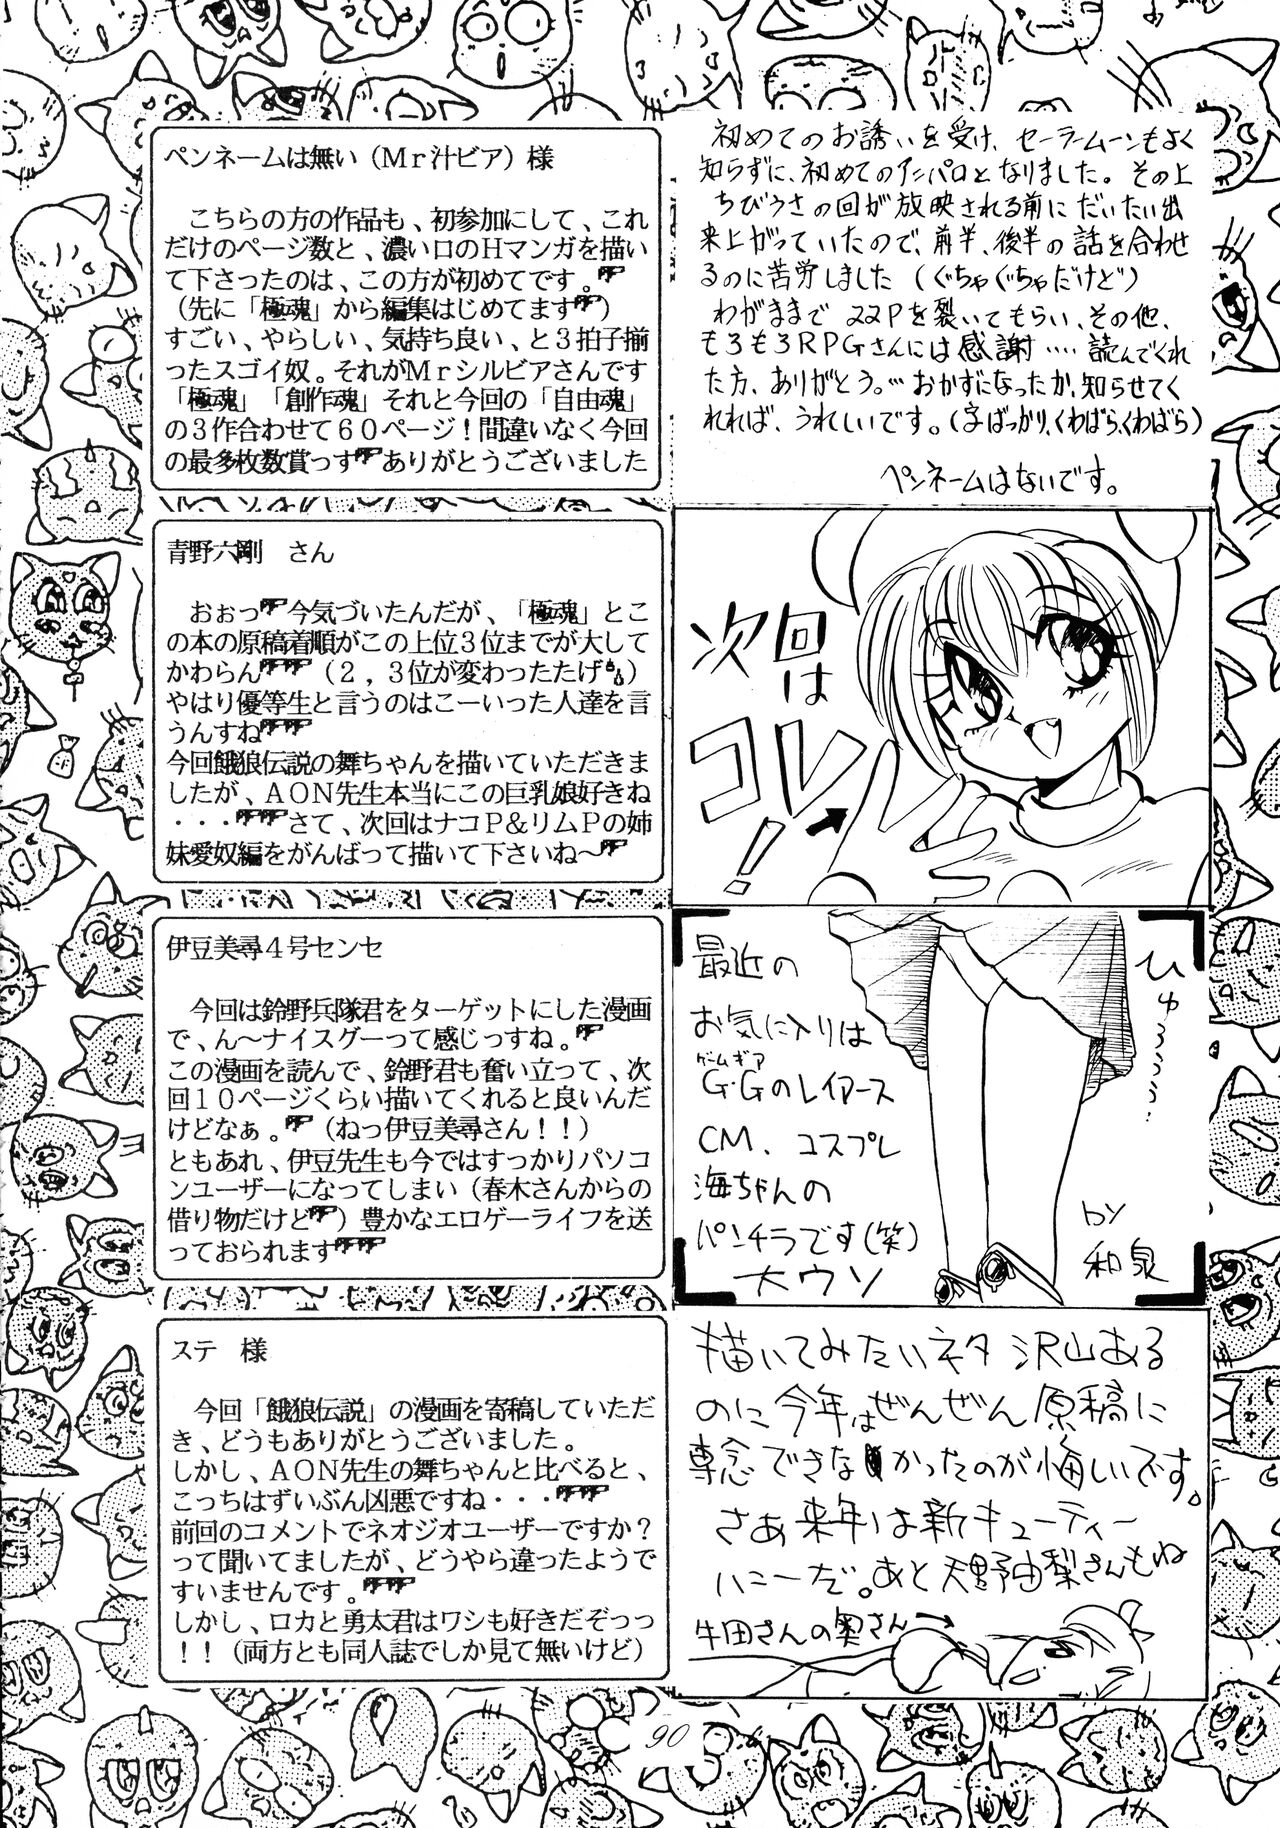 ペンネームは無い（Mｒ汁ビア）様
こちらの方の作品も、初参加にして、これ
だけのページ数と、濃い口のＨマンガを描い
て下さったのは、この方が初めてです。
（先に「極魂」から編集はじめてます）
すごい、やらしい、気持ち良い、と３拍子揃
ったスゴイ奴。それがＭｒシルビアさんです
「極魂」「創作魂」それと今回の「自由魂」
の３作合わせて６０ページ！間違いなく今回
の最多枚数賞っす ありがとうございました
初めてのお誘いを受け、セーラームーンもよく
知らずに、初めてのアニパロとなりました。その上
ちびうさの回が放映される前にだいたい出
来上がっていたので、前半、後半の話を合わせ
るのに苦労しました（ぐちゃぐちゃだけど）
わがままで22Pを裂いてもらい、その他、
もろもろRPGさんには感謝‥‥読んでくれ
た方、ありがとう。…おかずになったか、知らせてく
れれば、うれしいです。（字ばっかり、くわばら、くわばら）
ペンネームはないです。
青野六剛　さん
おぉっ 今気づいたんだが、「極魂」とこ
の本の原稿着順がこの上位３位までが大して
かわらん （２，３位が変わったたげ）
やはり優等生と言うのはこーいった人達を言
うんすね
今回餓狼伝説の舞ちゃんを描いていただきま
したが、ＡＯＮ先生本当にこの巨乳娘好きね
・・・ さて、次回はナコＰ＆リムＰの姉
妹愛奴編をがんばって描いて下さいね～
次回は
コレ！
伊豆美尋４号センセ
今回は鈴野兵隊君をターゲットにした漫画
で、ん～ナイスグーって感じっすね。
この漫画を読んで、鈴野君も奮い立って、次
回１０ページくらい描いてくれると良いんだ
けどなぁ。（ねっ伊豆美尋さん！！）
ともあれ、伊豆先生も今ではすっかりパソコ
ンユーザーになってしまい（春木さんからの
借り物だけど）豊かなエロゲーライフを送
っておられます
最近の
お気に入りは
ゲームギア
G.Gのレイアース
CM、コスプレ
海ちゃんの
パンチラです（笑）
大ウソ
ひゅううう…
by
和泉
ステ　様
今回「餓狼伝説」の漫画を寄稿していただ
き、どうもありがとうございました。
しかし、ＡＯＮ先生の舞ちゃんと比べると、
こっちはずいぶん凶悪ですね・・・
前回のコメントでネオジオユーザーですか？
って聞いてましたが、どうやら違ったようで
すいませんです。
しかし、ロカと勇太君はワシも好きだぞっっ
！！（両方とも同人誌でしか見て無いけど）
描いてみたいネタ 沢山ある
のに今年はぜんぜん原稿に
専念できなかったのが悔しいです。
さあ来年は新キューティー
ハニーだ。あと天野由梨さんもね
牛田さんの奥さん→
90